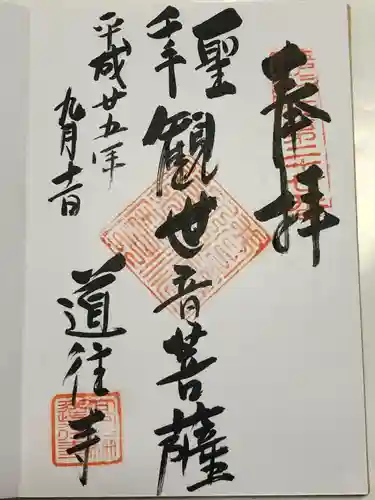 奉拝
聖
千手
観世音菩薩
平成廿五年
九月十二日
道往寺